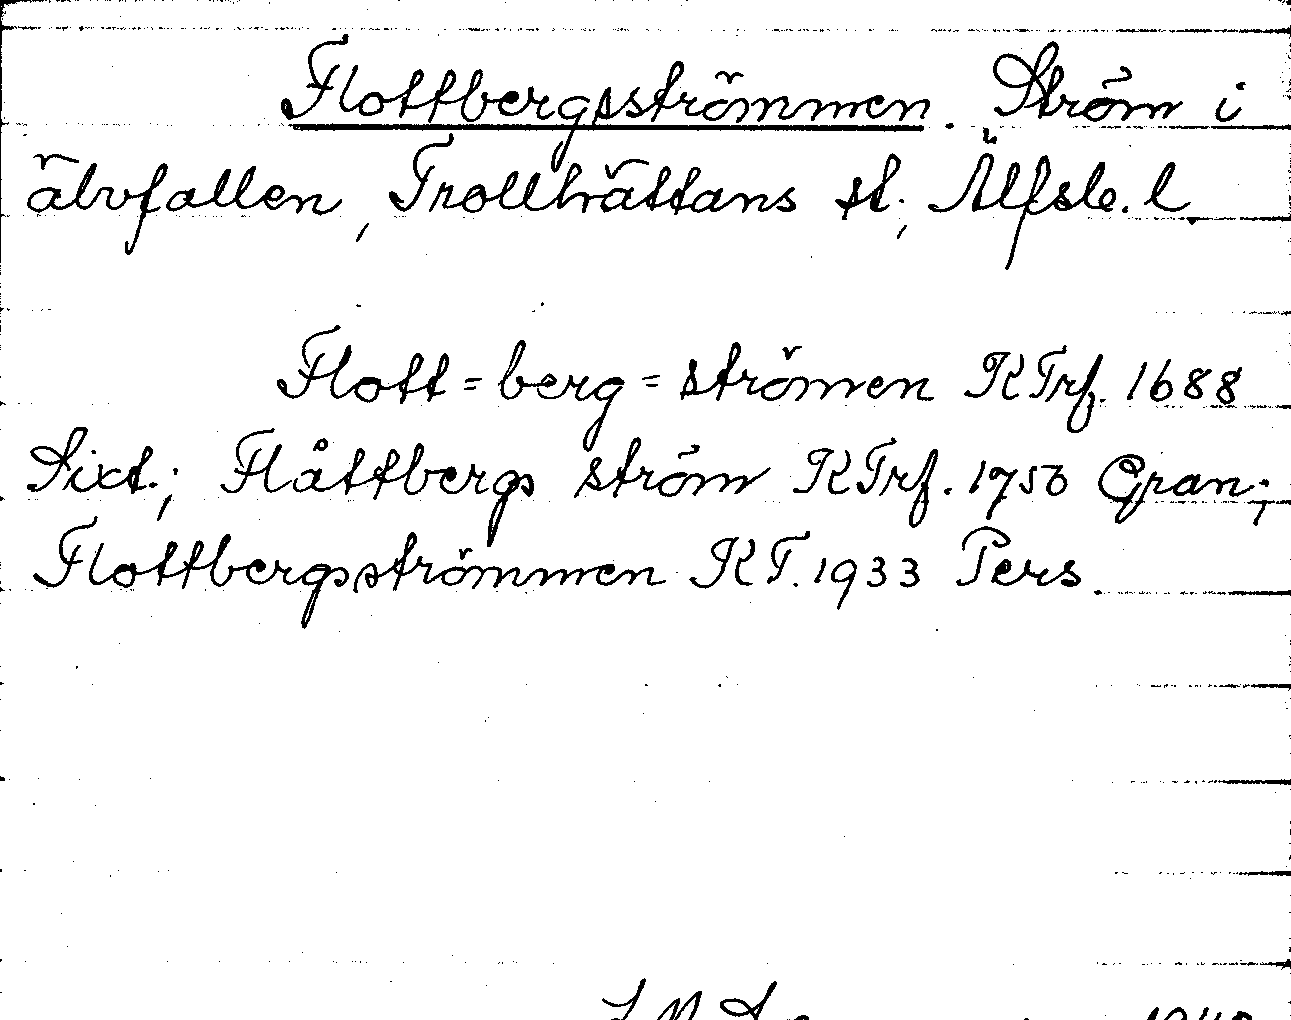 Flottbergsströmmen. Ström i
älvfallen, Trollhättans st., Älfsb. l.
Flott=berg=strömen KTrf. 1688
Sixt.; Flåttbergs ström KTrf. 1750 Gran.;
Flottbergsströmmen KT. 1933 Pers.